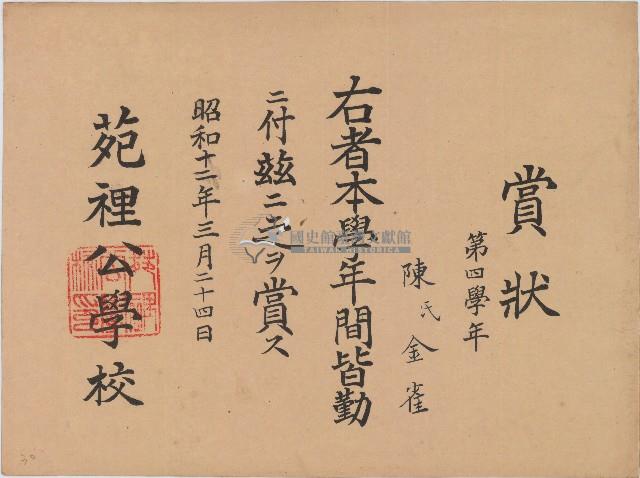 賞狀
第四學年
陳氏金雀
右者本學年間皆勤
ニ付玆ニ之ヲ賞ス
昭和十二年三月二十四日
苑裡公學校
國史館臺灣文獻館
TAIWAN HISTORICA
30